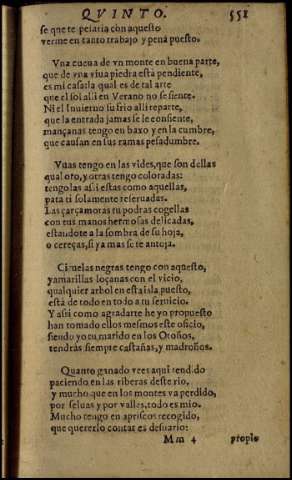 QVINTO. 558
se que te pesaria con aquesto
verme en tanto trabajo y pena puesto.
Vna cueua de vn monte en buena parte,
que de vna viua piedra está pendiente,
es mi casa la qual es de tal arte
que el sol alli en Verano no se siente.
Ni el Inuierno su frio alli reparte,
que la entrada jamas se le consiente,
mançanas tengo en baxo y en la cumbre,
que causan en sus ramas pesadumbre.
Vuas tengo en las vides, que son dellas
qual oro, y otras tengo coloradas:
tengo las assi estas como aquellas,
para ti solamente reseruadas.
Las çarçamoras tu podras cogellas
con tus manos hermosas delicadas,
estandote a la sombra de su hoja,
o cereças, si ya mas se te antoja.
Ciruelas negras tengo con aquesto,
y amarillas loçanas con el vicio,
qualquier arbol en esta isla puesto,
está de todo en todo a tu seruicio.
Y assi como agradarte he yo propuesto
han tomado ellos mesmos este oficio,
siendo yo tu marido, en los Otoños,
tendrás siempre castañas, y madroños.
Quanto ganado vees aqui tendido
paciendo en las riberas deste rio,
y mucho que en los montes va perdido,
por seluas y por valles, todo es mio.
Mucho tengo en apriscos recogido,
que quererlo contar es desuario:
Mm 4 propio